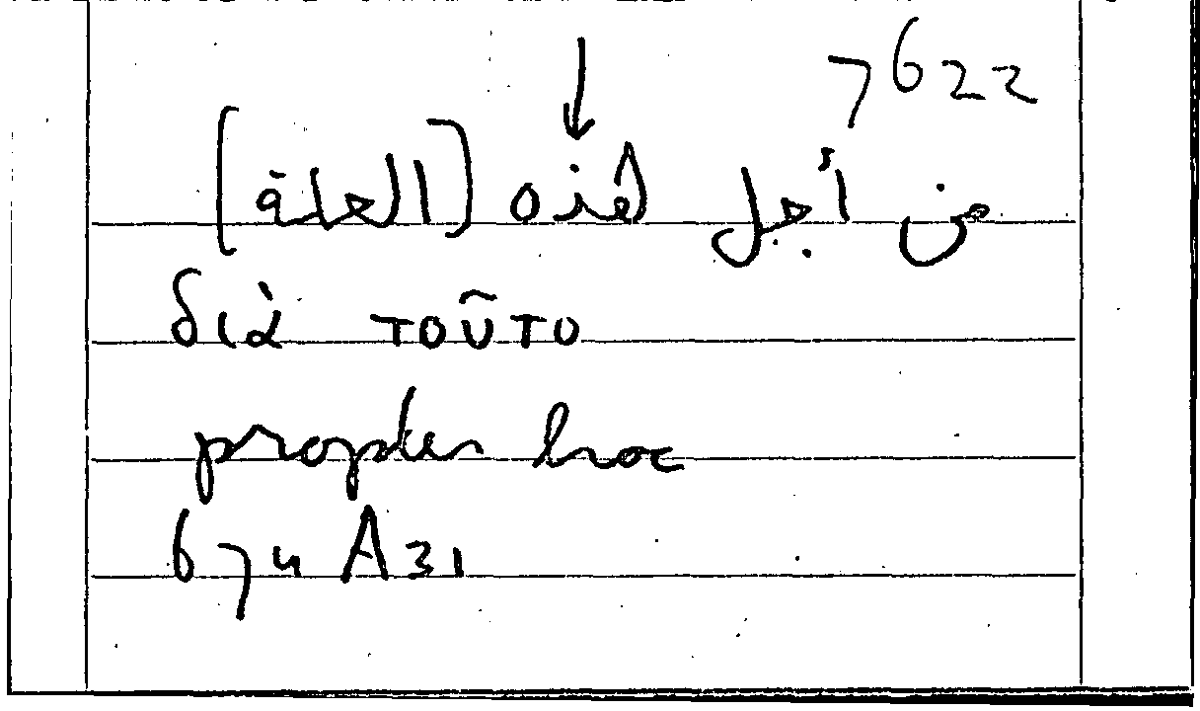 7622
من أجل هذه [العلة]
διὰ τοῦτο
propter hoc
674 A31